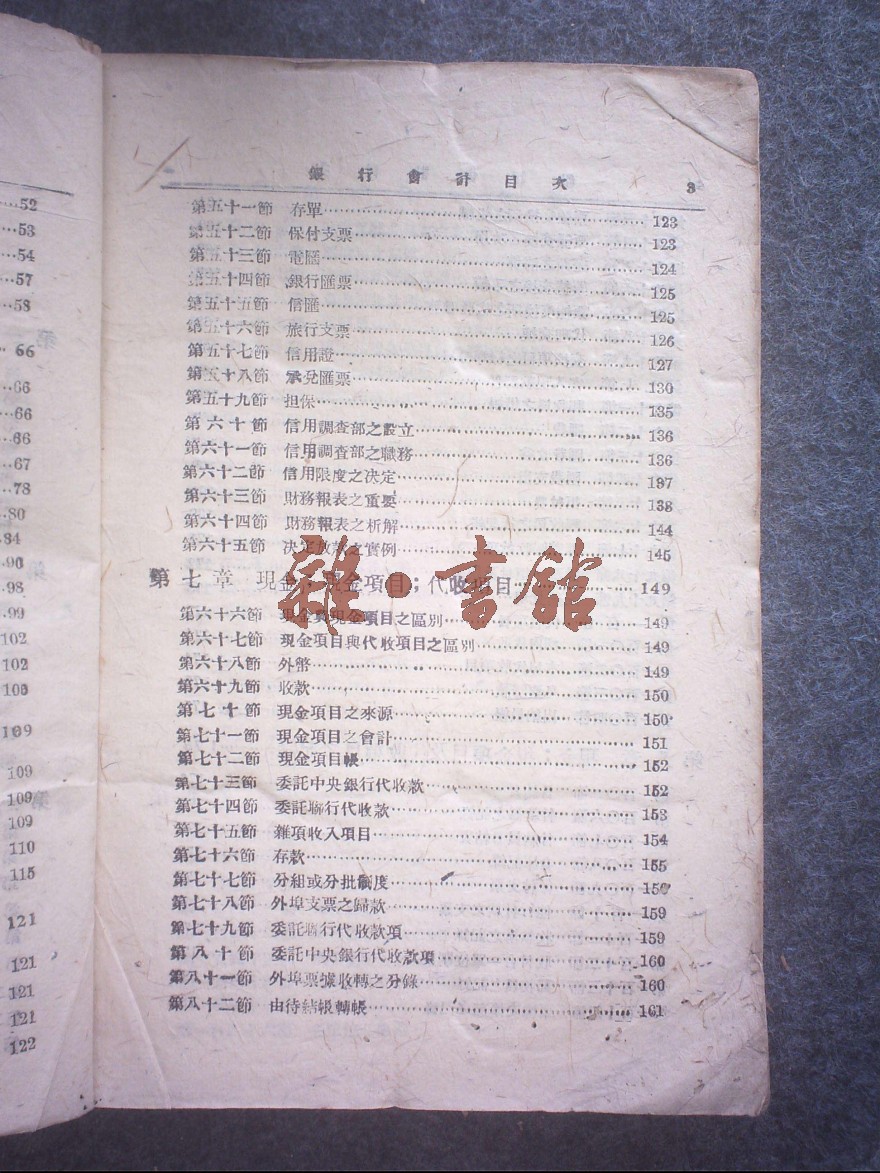 52
53
54
57
58
66
66
66
66
67
78
80
84
98
99
102
102
109
109
109
109
110
115
121
121
121
121
122
銀行會計目次 3
第五十一節 存單 123
第五十二節 保付支票 123
第五十三節 電匯 124
第五十四節 銀行匯票 125
第五十五節 信匯 125
第五十六節 旅行支票 126
第五十七節 信用證 127
第五十八節 承兌匯票 130
第五十九節 担保 135
第六十節 信用調查部之設立 136
第六十一節 信用調查部之職務 136
第六十二節 信用限度之決定 137
第六十三節 財務報表之重要 138
第六十四節 財務報表之析解 144
第六十五節 決定放款之實例 145
第七章 現金；現金項目；代收項目 149
第六十六節 現金與現金項目之區別 149
第六十七節 現金項目與代收項目之區別 149
第六十八節 外幣 149
第六十九節 收款 150
第七十節 現金項目之來源 150
第七十一節 現金項目之會計 151
第七十二節 現金項目帳 152
第七十三節 委託中央銀行代收款 152
第七十四節 委託聯行代收款 153
第七十五節 雜項收入項目 154
第七十六節 存款 155
第七十七節 分組或分批制度
第七十八節 外埠支票之歸款 159
第七十九節 委託聯行代收款項 159
第八十節 委託中央銀行代收款項 160
第八十一節 外埠票據收轉之分錄 160
第八十二節 由待結帳轉帳 161
雜·書館